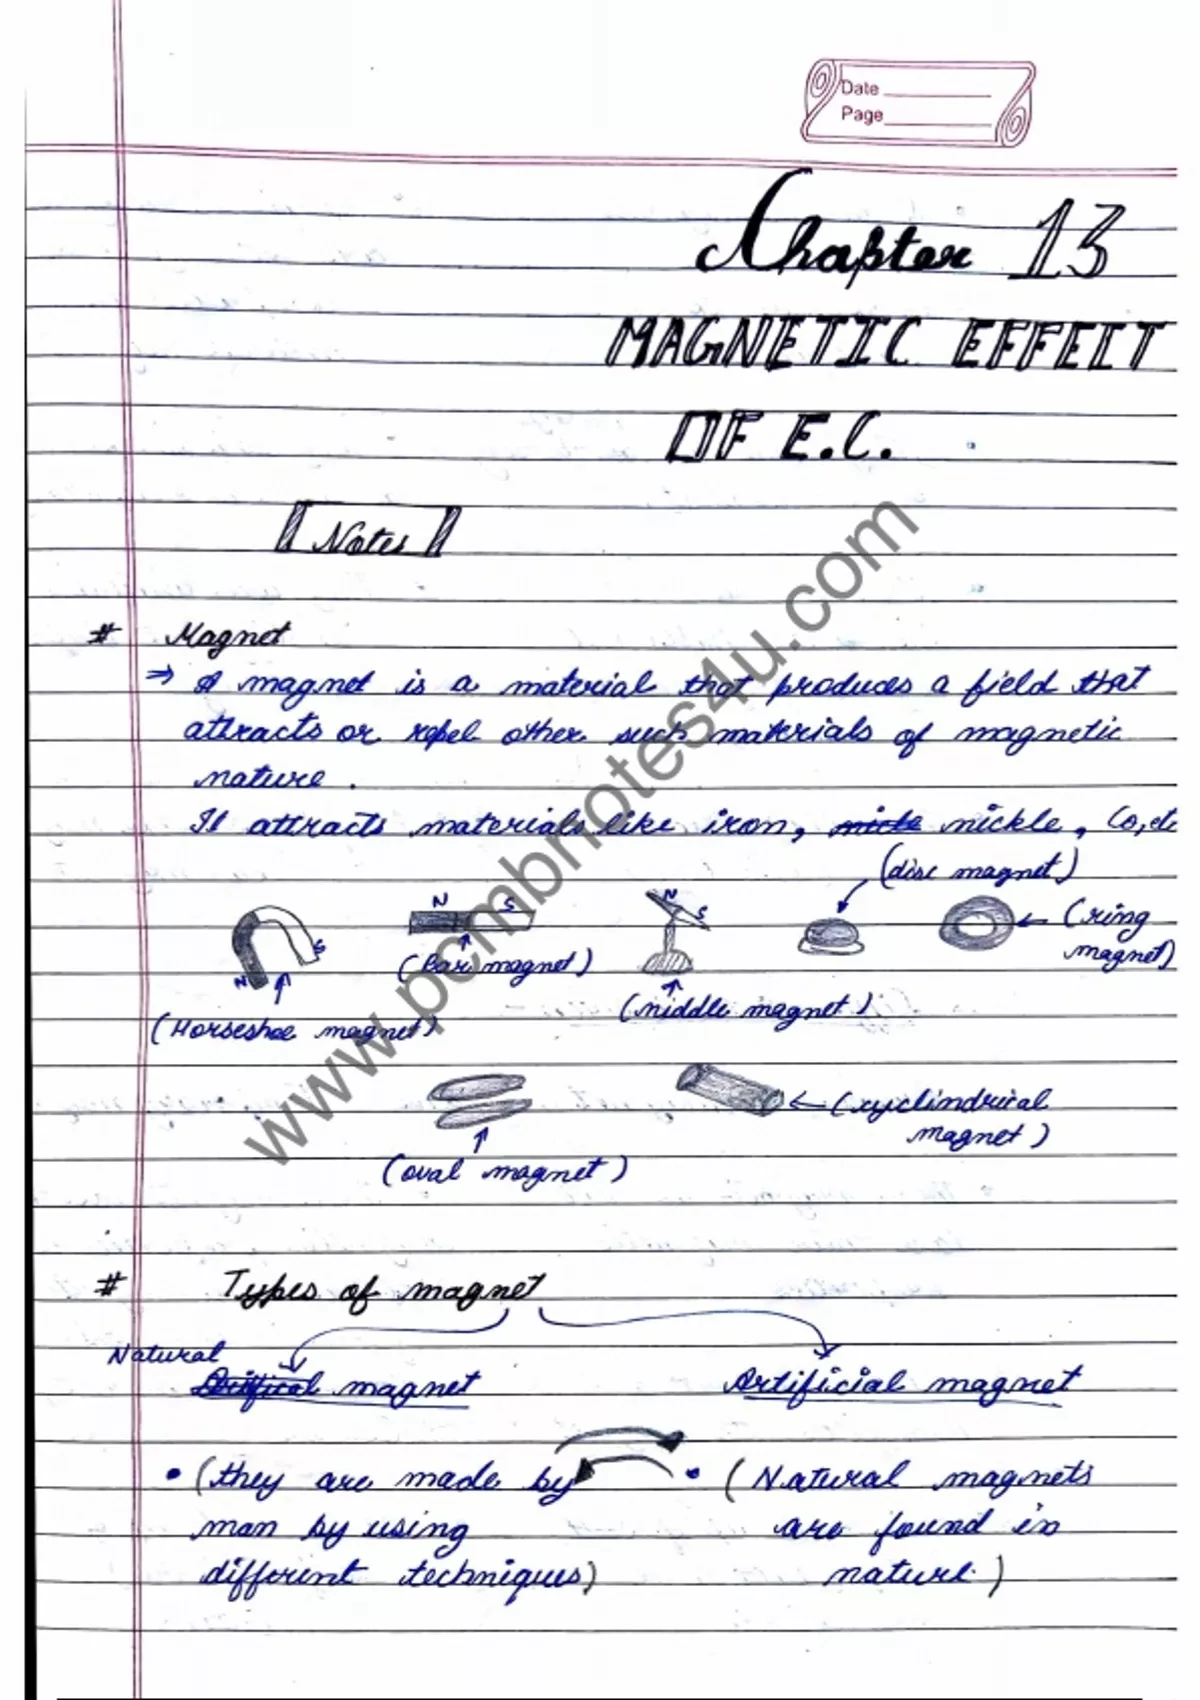 Date
Page
Chapter 13
MAGNETIC EFFECT
OF E.C.
Notes
# Magnet
⇒ A magnet is a material that produces a field that
attracts or repel other such materials of magnetic
nature .
It attracts materials like iron, nickle, Co, etc
(disc magnet)
N S
N S
(ring
magnet)
(Bar magnet)
N S
(niddle magnet)
(Horseshoe magnet)
(cyclindrical
magnet)
(oval magnet)
# Types of magnet
Natural
magnet Artificial magnet
• (they are made by • (Natural magnets
man by using are found in
different techniques) nature.)
www.pcmbnotes4u.com